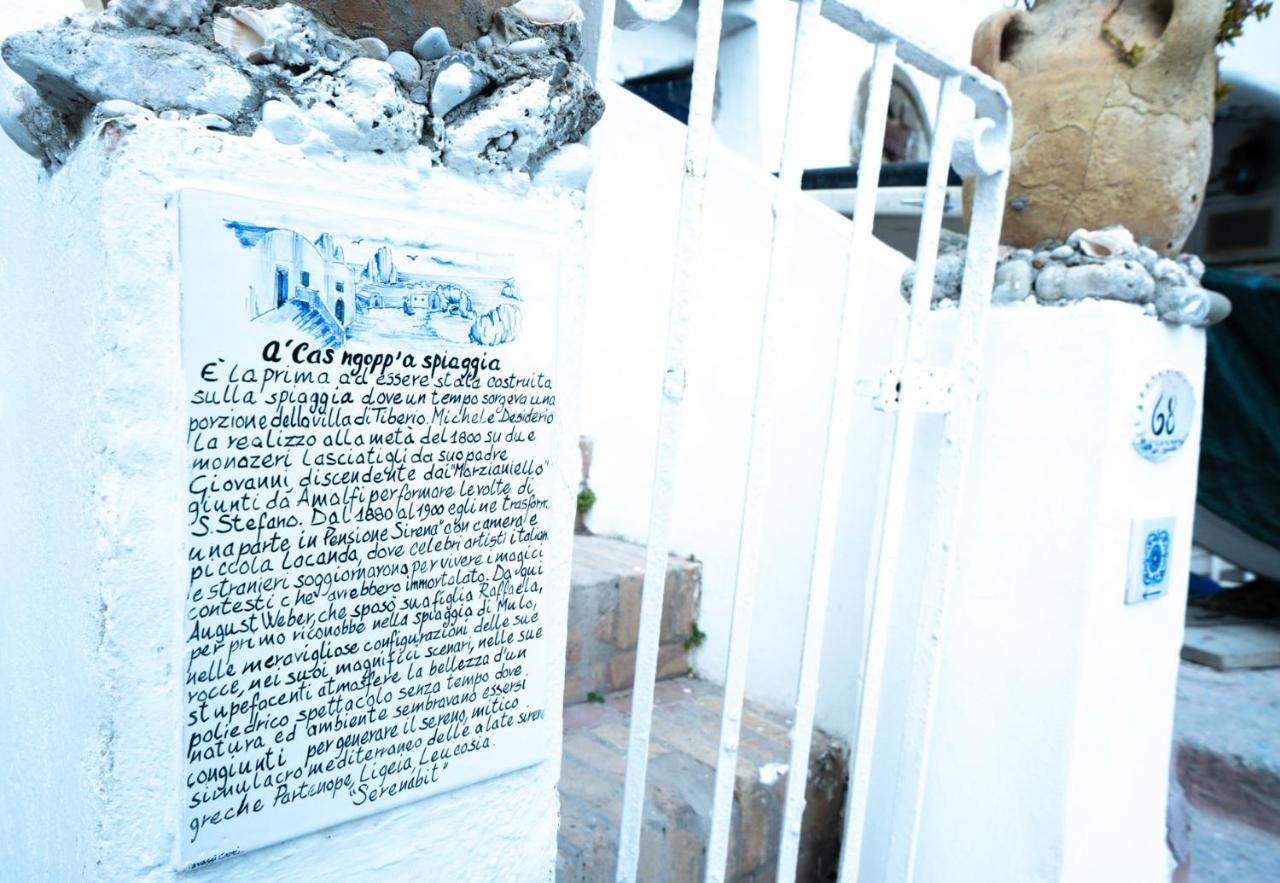 a' Cas ngopp'a spiaggia
È la prima ad essere stata costruita
sulla spiaggia dove un tempo sorgeva una
porzione della villa di Tiberio. Michele Desiderio
la realizzo alla metà del 1800 su due
monazeri lasciatigli da suo padre
Giovanni discendente dai "Marzianiello"
giunti da Amalfi per formare le volte di
S. Stefano. Dal 1880 al 1900 egli ne trasform
una parte in "Pensione Sirena" con camera e
piccola locanda, dove celebri artisti italiani
e stranieri soggiornarono per vivere i magici
contesti che avrebbero immortalato. Da qui
August Weber, che sposò sua figlia Raffaela,
per primo riconobbe nella spiaggia di Mulo,
nelle meravigliose configurazioni delle sue
rocce, nei suoi magnifici scenari, nelle sue
stupefacenti atmosfere la bellezza d'un
poliedrico spettacolo senza tempo dove
natura ed ambiente sembravano essersi
congiunti per generare il sereno, mitico
simulacro mediterraneo delle alate sirene
greche Partenope, Ligeia, Leucosia.
"Serenabit"
68